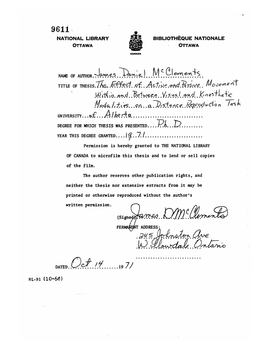 9611
NATIONAL LIBRARY
OTTAWA
BIBLIOTHÈQUE NATIONALE
OTTAWA
NAME OF AUTHOR James Daniel McClements
TITLE OF THESIS The Effect of Active and Passive Movement
Within and Between Visual and Kinesthetic
Modalities on a Distance Reproduction Task
UNIVERSITY of Alberta
DEGREE FOR WHICH THESIS WAS PRESENTED Ph D
YEAR THIS DEGREE GRANTED 1971
Permission is hereby granted to THE NATIONAL LIBRARY
OF CANADA to microfilm this thesis and to lend or sell copies
of the film.
The author reserves other publication rights, and
neither the thesis nor extensive extracts from it may be
printed or otherwise reproduced without the author's
written permission.
(Signed) James D McClements
PERMANENT ADDRESS:
245 Johnston Ave
Willowdale Ontario
DATED Oct 14 1971
NL-91 (10-68)